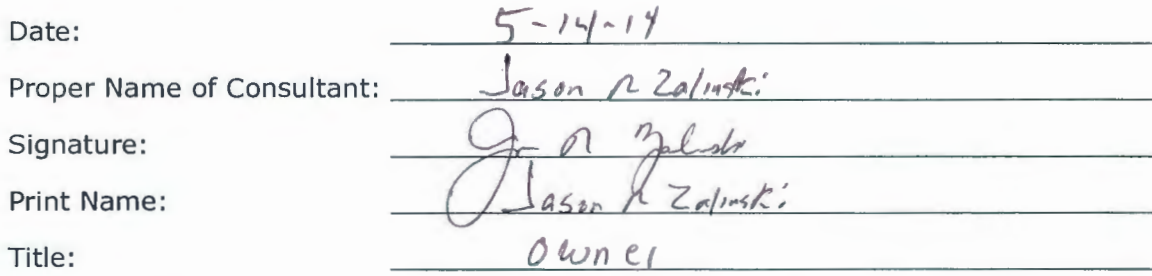 Date: 5-14-14
Proper Name of Consultant: Jason R Zalinski
Signature: Jason R Zalinski
Print Name: Jason R Zalinski
Title: Owner